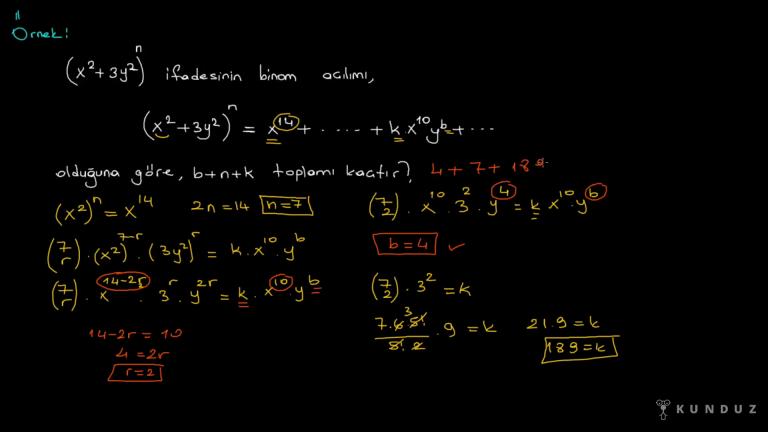 Örnek!
(x² + 3y²)ⁿ ifadesinin binom açılımı,
(x² + 3y²)ⁿ = x¹⁴ + ..... + k.x¹⁰yᵇ + ...
olduğuna göre, b+n+k toplamı kaçtır? 4 + 7 + 189
(x²)ⁿ = x¹⁴ 2n = 14 n = 7
(7 r) . (x²)⁷⁻ʳ . (3y²)ʳ = k.x¹⁰.yᵇ
(7 r) . x¹⁴⁻²ʳ . 3ʳ . y²ʳ = k . x¹⁰ . yᵇ
14-2r = 10
4 = 2r
r = 2
(7 2) . x¹⁰ . 3² . y⁴ = k x¹⁰ . yᵇ
b = 4
(7 2) . 3² = k
7.6³.5! / 5!.2 . 9 = k 21.9 = k
189 = k
KUNDUZ